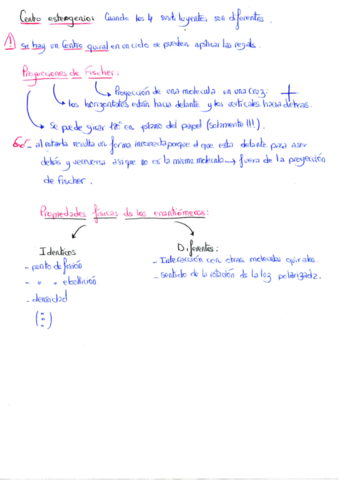 Centro estereogenico: Cuando los 4 sustituyentes son diferentes.
! Si hay un centro quiral en un ciclo se pueden aplicar las reglas.
Proyecciones de Fischer:
Proyección de una molecula en una cruz:
Los horizontales están hacia delante y los verticales hacia detras.
Se puede girar 180° en plano del papel (solamente!!!)
al rotarla resulta en forma incorrecta porque el que esta delante pasa a ser
detrás y viceversa asi que no es la misma molecula → fuera de la proyección
de Fischer.
Propiedades físicas de los enantiómeros:
Identicas
- punto de fusión
- " " ebullición
- densidad
Diferentes:
- Interacción con otras moleculas quirales
- sentido de la rotación de la luz polarizada.